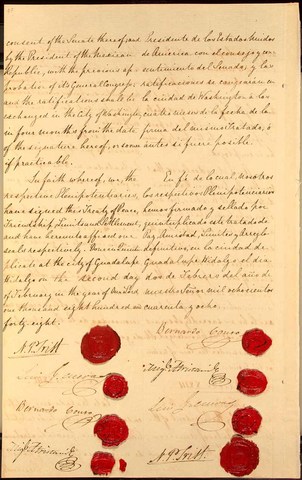 consent of the Senate thereof; and
by the President of the Mexican
Republic, with the previous ap-
probation of its General Congress;
and the ratifications shall be
exchanged in the City of Washington,
in four months from the date
of the signature hereof, or sooner
if practicable.
In faith whereof, we, the
respective Plenipotentiaries,
have signed this Treaty of Peace,
Friendship, Limits and Settlement,
and have hereunto affixed our
seals respectively. Done in Quintu-
plicate at the City of Guadalupe
Hidalgo on the second day
of February in the year of Our Lord
one thousand eight hundred and
forty eight.
N. P. Trist
Luis G. Cuevas
Bernardo Couto
Migl. Atristain
Presidente de los Estados Unidos
de America, con el consejo y con-
sentimiento del Senado, y las
ratificaciones se cangearán en
la ciudad de Washington a los
cuatro meses de la fecha de la
firma del mismo Tratado, ó
antes si fuere posible.
En fé de lo cual, nosotros
los respectivos Plenipotenciarios
hemos firmado y sellado por
quintuplicado este tratado de
Paz, Amistad, Límites y Arreglo
definitivo, en la ciudad de
Guadalupe Hidalgo el dia
dos de Febrero del año de
nuestro Señor mil ochocientos
cuarenta y ocho
Bernardo Couto
Migl. Atristain
Luis G. Cuevas
N. P. Trist